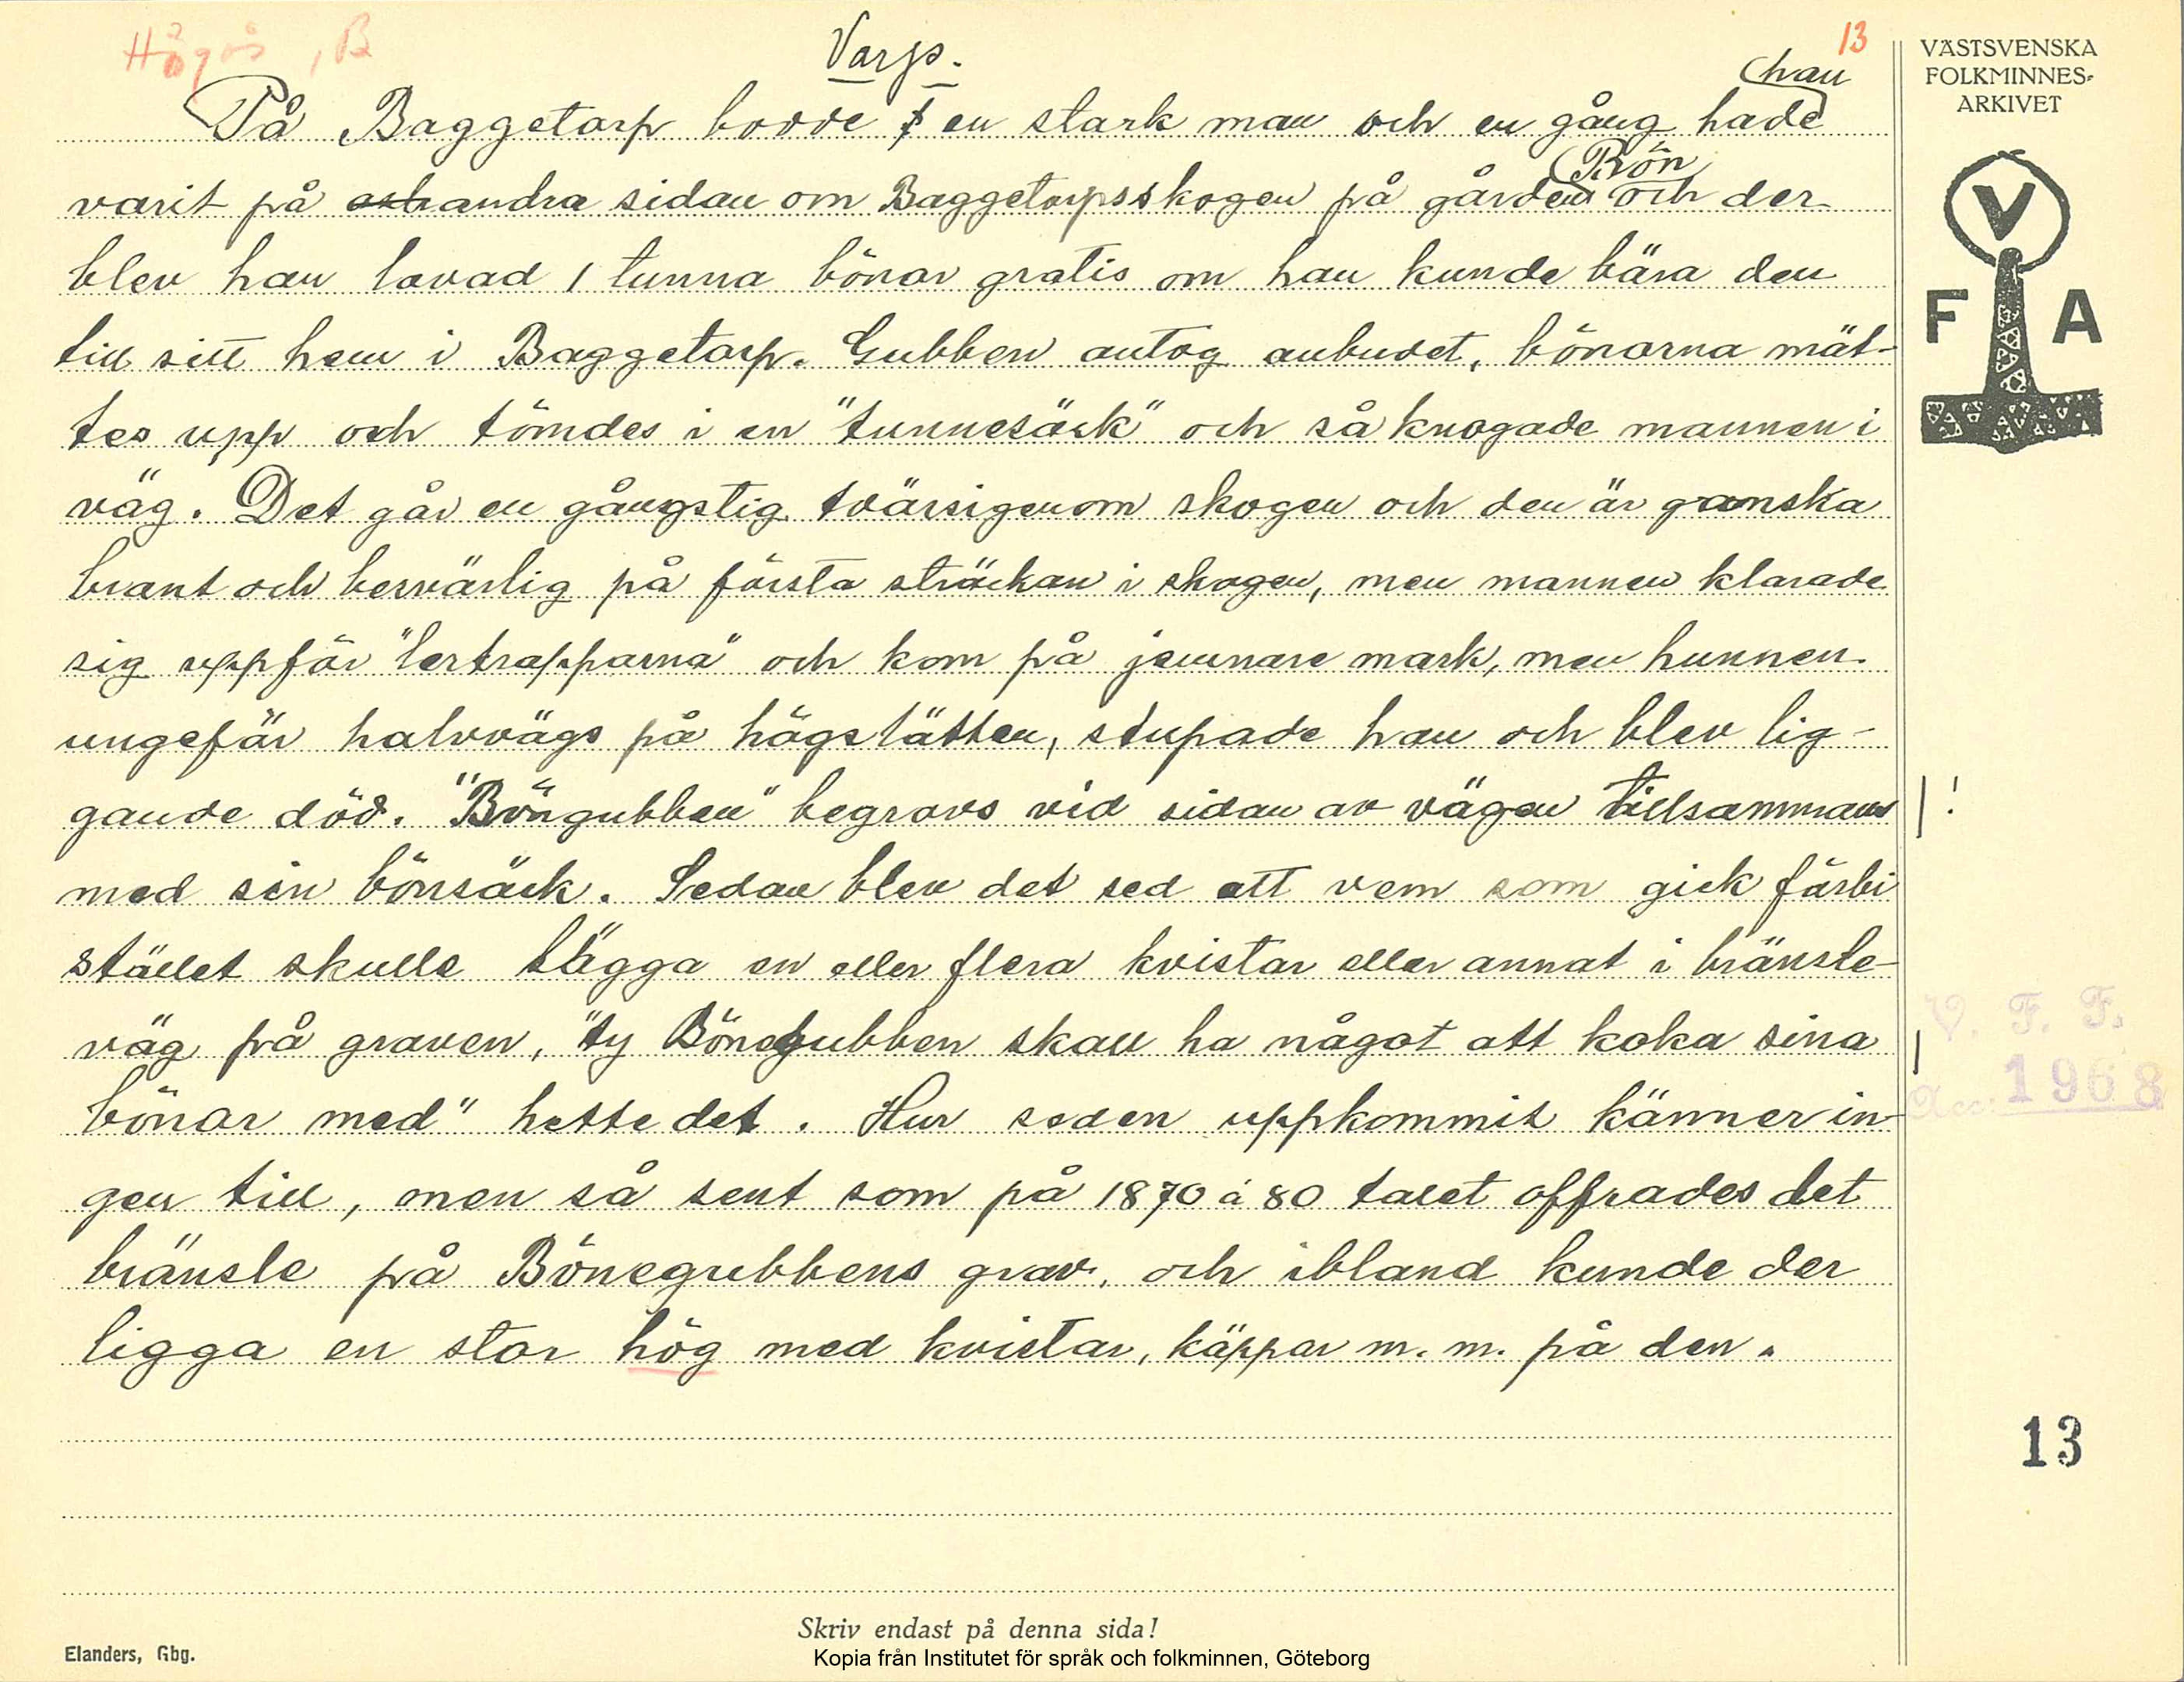 Högås, B
Varp.
13
VÄSTSVENSKA
FOLKMINNES-
ARKIVET
V
F A
han
På Baggetorp bodde en stark man och en gång hade
Rön
varit på och andra sidan om Baggetorpsskogen på gården och der
blev han lovad 1 tunna bönor gratis om han kunde bära den
till sitt hem i Baggetorp. Gubben antog anbudet, bönorna mät-
tes upp och tömdes i en "tunnesäck" och så knogade mannen i
väg. Det går en gångstig tvärsigenom skogen och den är ganska
brant och besvärlig på första sträckan i skogen, men mannen klarade
sig uppför "lertrapporna" och kom på jemnare mark, men hunnen
ungefär halvvägs på högslätten, stupade han och blev lig-
gande död. "Böngubben" begravs vid sidan av vägen tillsammans
med sin bönsäck. Sedan blev det sed att vem som gick förbi
stället skulle lägga en eller flera kvistar eller annat i bränsle-
väg på graven, "ty Bönegubben skall ha något att koka sina
bönor med" hette det. Hur seden uppkommit känner in-
gen till, men så sent som på 1870 á 80 talet offrades det
bränsle på Bönegubbens grav, och ibland kunde der
ligga en stor hög med kvistar, käppar m. m. på den.
!
V. F. F.
Acc. 1968
13
Skriv endast på denna sida!
Elanders, Gbg.
Kopia från Institutet för språk och folkminnen, Göteborg